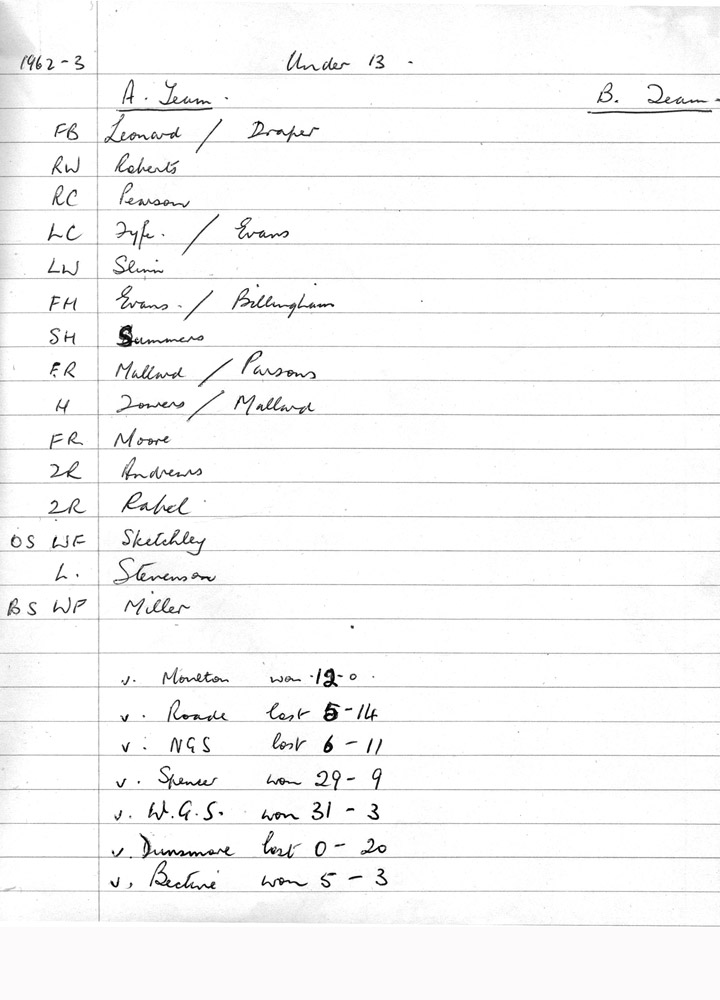 1962-3 Under 13 .
A. Team. B. Team.
FB Leonard / Draper
RW Roberts
RC Pearson
LC Fyfe. / Evans
LW Slinn
FH Evans. / Billingham
SH Summers
FR Mallard / Parsons
H Towers / Mallard
FR Moore
2R Andrews
2R Rahel
OS WF Sketchley
L. Stevenson
BS WF Miller
v. Moulton won 12-0.
v. Roade lost 5-14
v. NGS lost 6-11
v. Spencer won 29-9
v. W.G.S. won 31-3
v. Dunsmore lost 0-20
v. Bective won 5-3